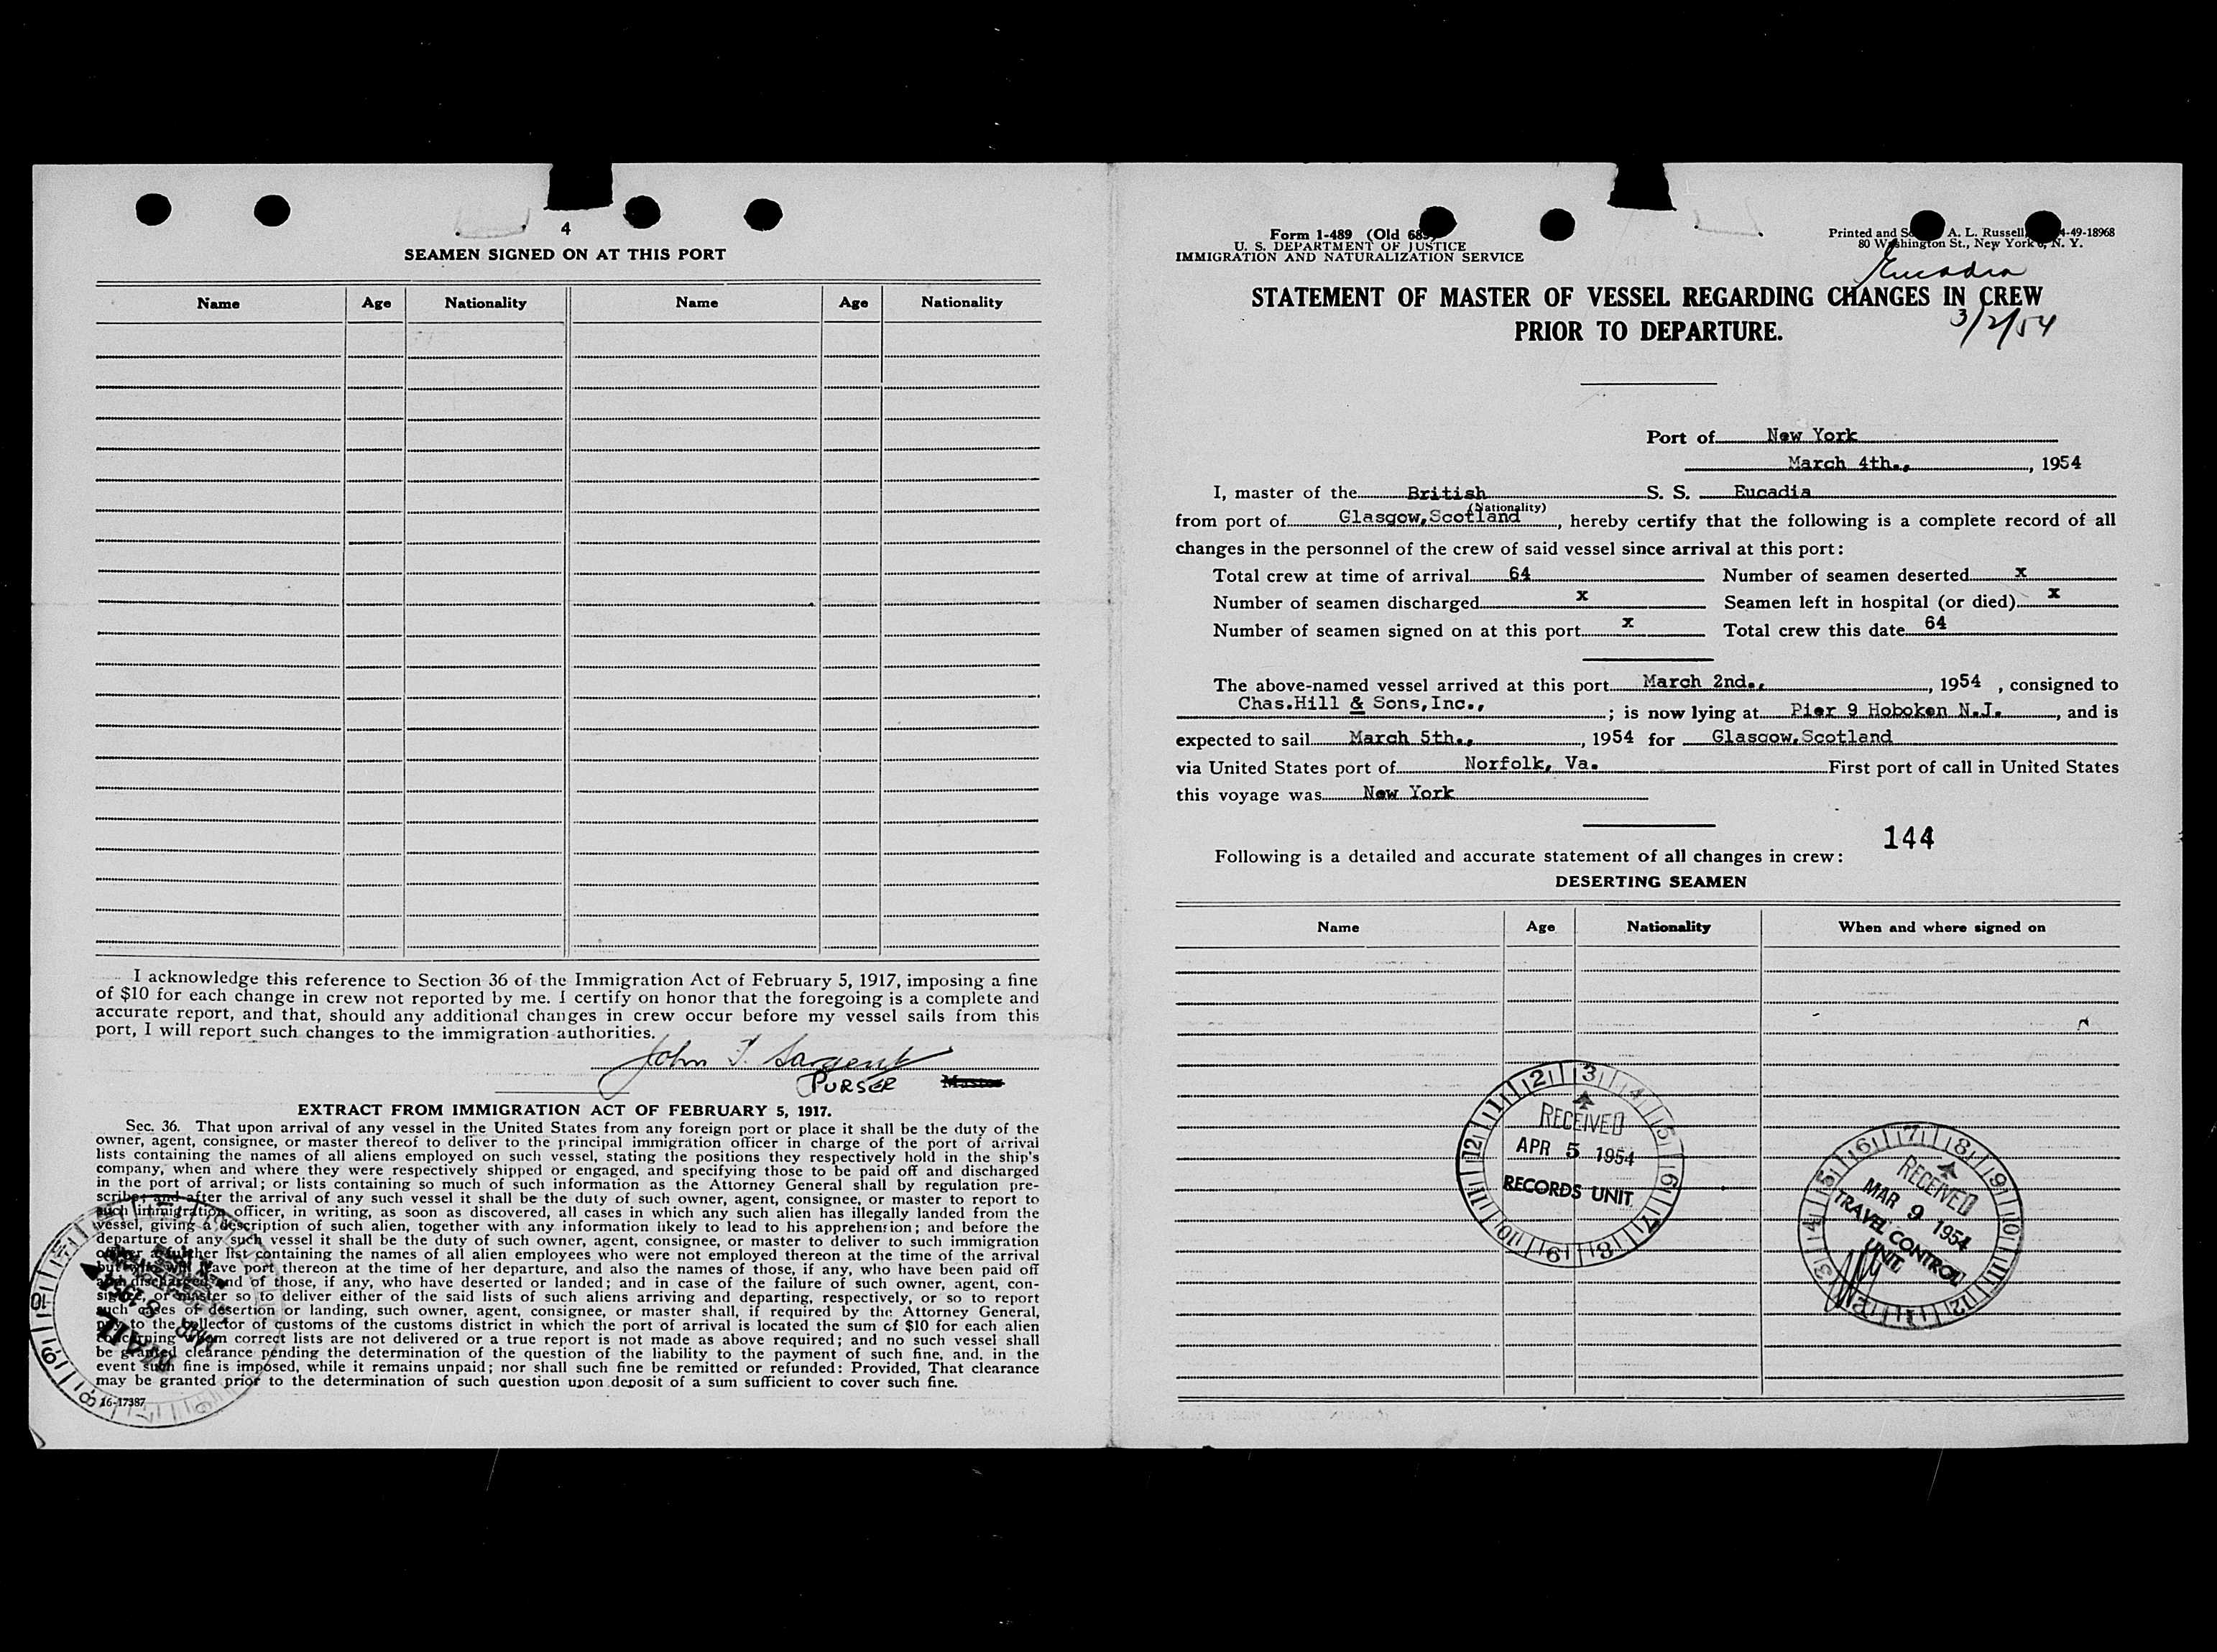 4
SEAMEN SIGNED ON AT THIS PORT
Name Age Nationality Name Age Nationality
I acknowledge this reference to Section 36 of the Immigration Act of February 5, 1917, imposing a fine
of $10 for each change in crew not reported by me. I certify on honor that the foregoing is a complete and
accurate report, and that, should any additional changes in crew occur before my vessel sails from this
port, I will report such changes to the immigration authorities.
John T. Sargent
PURSER Master
EXTRACT FROM IMMIGRATION ACT OF FEBRUARY 5, 1917.
Sec. 36. That upon arrival of any vessel in the United States from any foreign port or place it shall be the duty of the
owner, agent, consignee, or master thereof to deliver to the principal immigration officer in charge of the port of arrival
lists containing the names of all aliens employed on such vessel, stating the positions they respectively hold in the ship's
company, when and where they were respectively shipped or engaged, and specifying those to be paid off and discharged
in the port of arrival; or lists containing so much of such information as the Attorney General shall by regulation pre-
scribe; and after the arrival of any such vessel it shall be the duty of such owner, agent, consignee, or master to report to
such immigration officer, in writing, as soon as discovered, all cases in which any such alien has illegally landed from the
vessel, giving a description of such alien, together with any information likely to lead to his apprehension; and before the
departure of any such vessel it shall be the duty of such owner, agent, consignee, or master to deliver to such immigration
officer a further list containing the names of all alien employees who were not employed thereon at the time of the arrival
but who will leave port thereon at the time of her departure, and also the names of those, if any, who have been paid off
and discharged, and of those, if any, who have deserted or landed; and in case of the failure of such owner, agent, con-
signee, or master so to deliver either of the said lists of such aliens arriving and departing, respectively, or so to report
such cases of desertion or landing, such owner, agent, consignee, or master shall, if required by the Attorney General,
pay to the collector of customs of the customs district in which the port of arrival is located the sum of $10 for each alien
concerning whom correct lists are not delivered or a true report is not made as above required; and no such vessel shall
be granted clearance pending the determination of the question of the liability to the payment of such fine, and, in the
event such fine is imposed, while it remains unpaid; nor shall such fine be remitted or refunded: Provided, That clearance
may be granted prior to the determination of such question upon deposit of a sum sufficient to cover such fine.
16-17387
Form 1-489 (Old 689)
U. S. DEPARTMENT OF JUSTICE
IMMIGRATION AND NATURALIZATION SERVICE
Printed and A. L. Russell, 4-49-18968
80 Washington St., New York 6, N. Y.
Eucadia
STATEMENT OF MASTER OF VESSEL REGARDING CHANGES IN CREW
PRIOR TO DEPARTURE.
3/2/54
Port of New York
March 4th., , 1954
I, master of the British S. S. Eucadia
(Nationality)
from port of Glasgow,Scotland , hereby certify that the following is a complete record of all
changes in the personnel of the crew of said vessel since arrival at this port:
Total crew at time of arrival 64 Number of seamen deserted x
Number of seamen discharged x Seamen left in hospital (or died) x
Number of seamen signed on at this port x Total crew this date 64
The above-named vessel arrived at this port March 2nd., , 1954 , consigned to
Chas.Hill & Sons,Inc., ; is now lying at Pier 9 Hoboken N.J. , and is
expected to sail March 5th., , 1954 for Glasgow,Scotland
via United States port of Norfolk, Va. First port of call in United States
this voyage was New York
144
Following is a detailed and accurate statement of all changes in crew:
DESERTING SEAMEN
Name Age Nationality When and where signed on
RECEIVED
APR 5 1954
RECORDS UNIT
RECEIVED
MAR 9 1954
TRAVEL CONTROL
UNIT